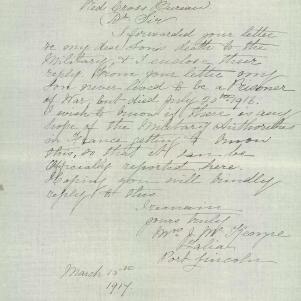 Red Cross Bureau
Dr Sir
I forwarded your letter
re my dear sons death to the
Military, & I enclose their
reply. From your letter my
son never lived to be a Prisoner
of War, but died July 23rd 1916.
I wish to know if there is any
hope of the Military Authorities
in France getting to know
this, so that it can be
officially reported here.
Hoping you will kindly
reply to this
I remain
yours truly
Mrs J. Mc
Port Lincoln
March 15th
1917.